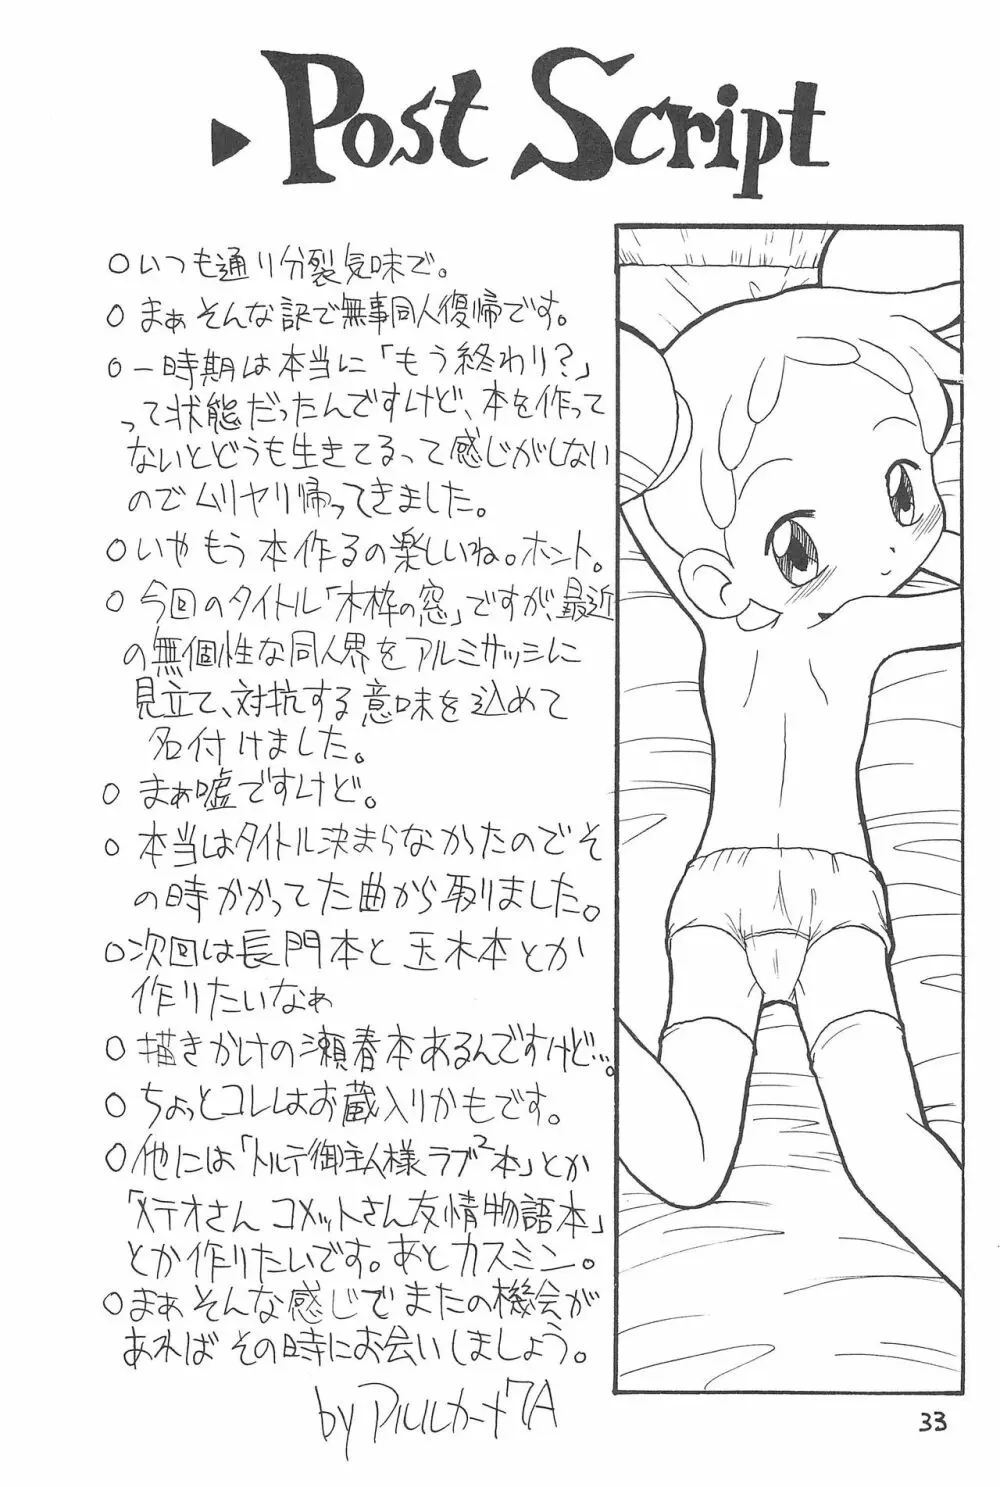 ▶Post Script
○いつも通り分裂気味で。
○まぁそんな訳で無事同人復帰です。
○一時期は本当に「もう終わり?」
って状態だったんですけど、本を作って
ないとどうも生きてるって感じがしない
のでムリヤリ帰ってきました。
○いやもう本作るの楽しいね。ホント。
○今回のタイトル「木枠の窓」ですが、最近
の無個性な同人界をアルミサッシに
見立て、対抗する意味を込めて
名付けました。
○まぁ嘘ですけど。
○本当はタイトル決まらなかったのでそ
の時かかってた曲から取りました。
○次回は長門本と玉木本とか
作りたいなぁ
○描きかけの瀬春本あるんですけど…。
○ちょっとコレはお蔵入りかもです。
○他には「トルテ御主人様ラブ2本」とか
「メテオさんコメットさん友情物語本」
とか作りたいです。あとカスミン。
○まぁそんな感じでまたの機会が
あればその時にお会いしましょう。
by アルルカート7A
33